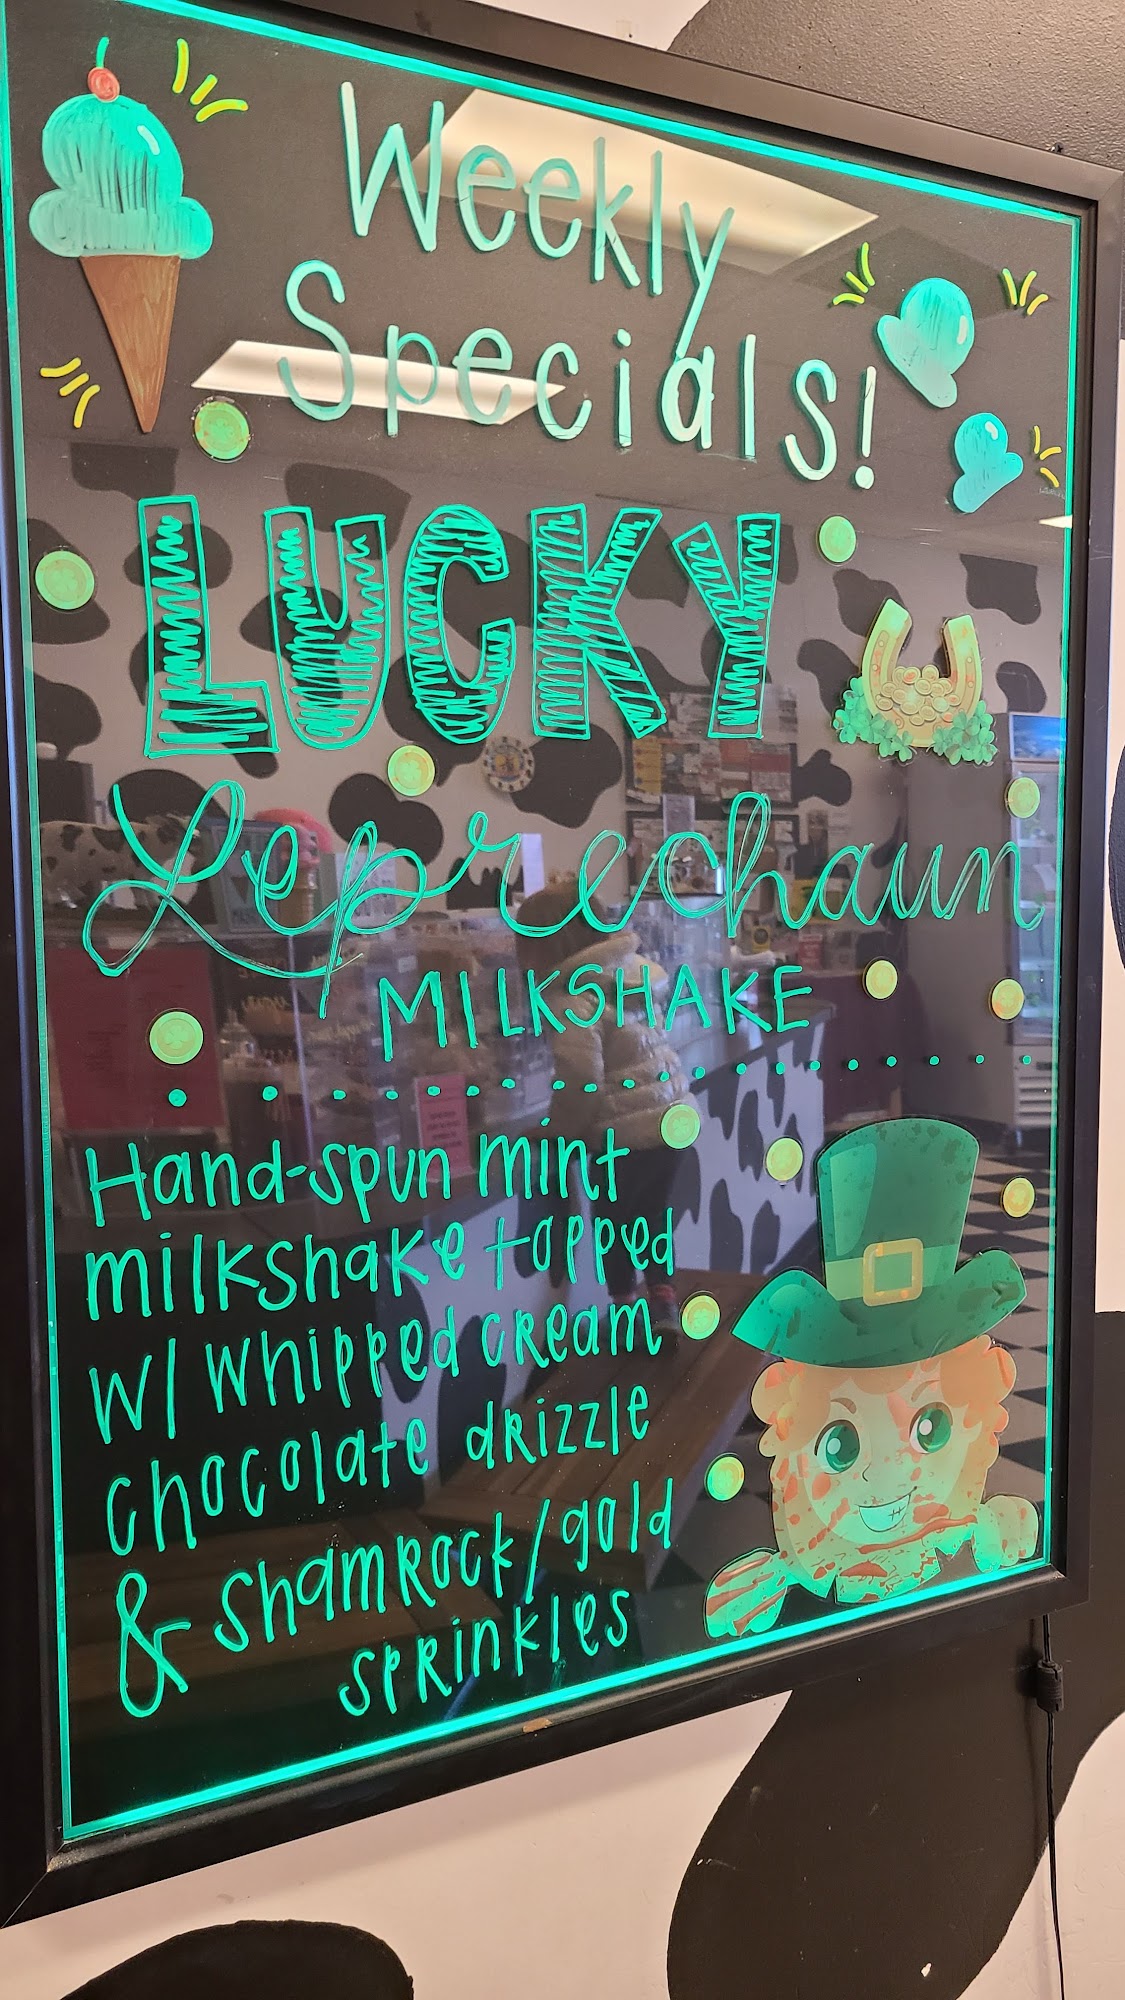 Weekly
Specials!
LUCKY
Leprechaun
MILKSHAKE
Hand-spun mint
milkshake topped
w/ whipped cream
chocolate drizzle
& shamrock/gold
sprinkles